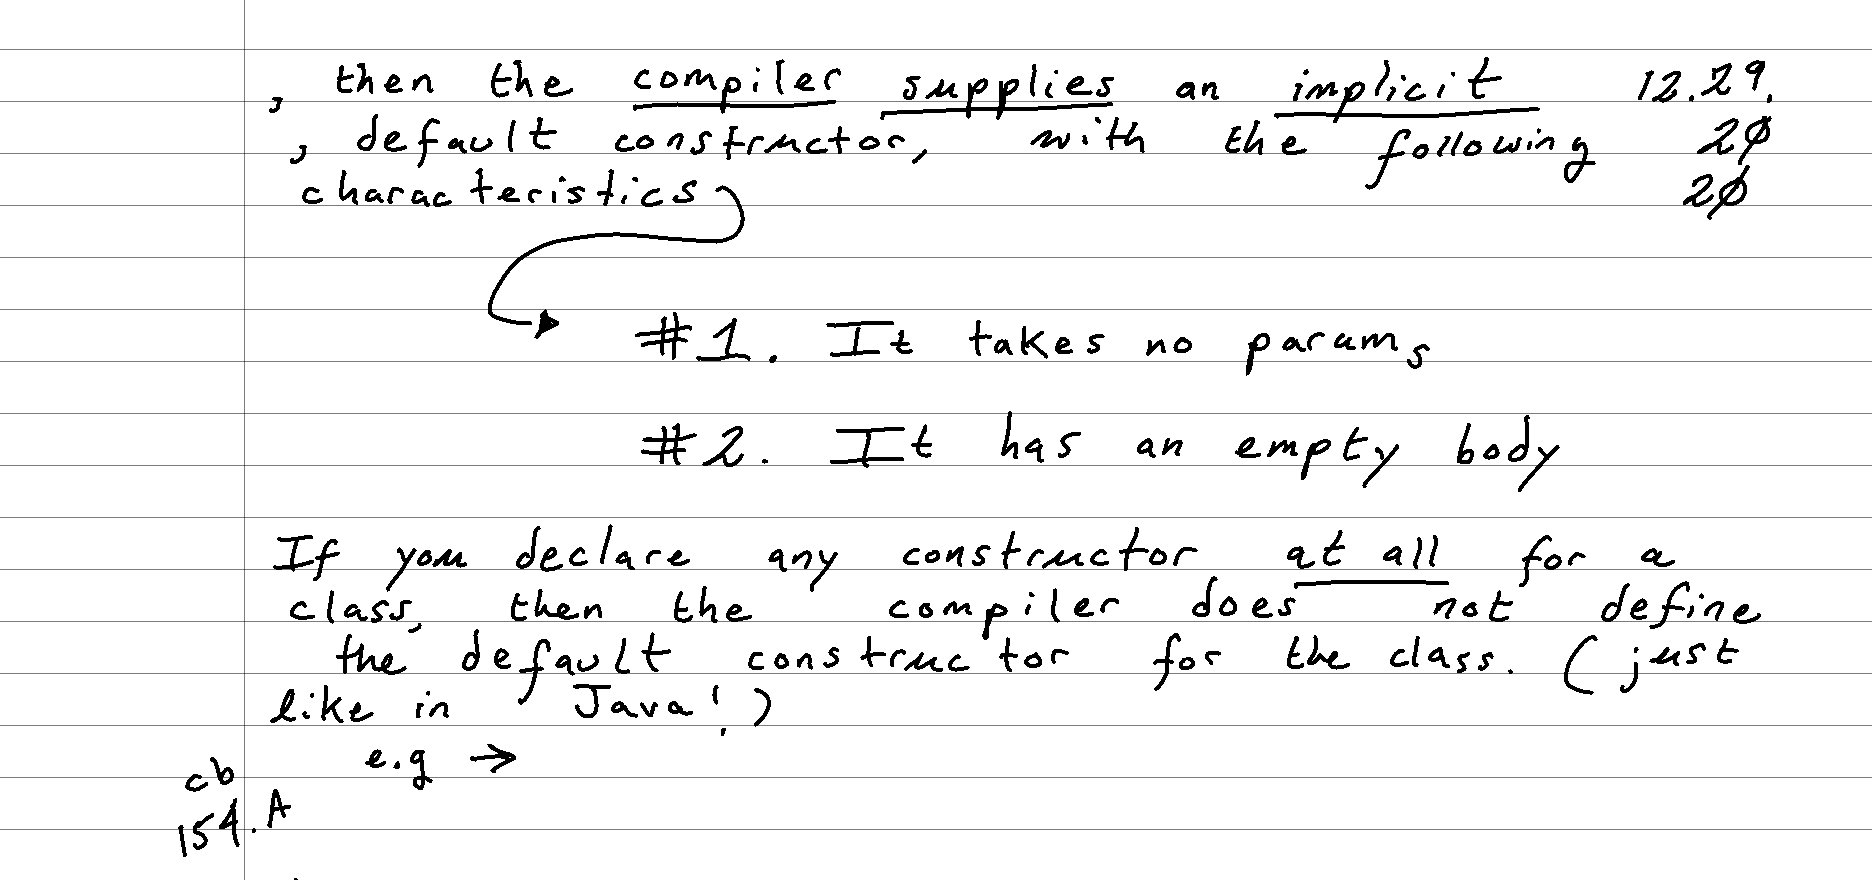 , then the compiler supplies an implicit 12.29.
, default constructor, with the following 2∅
characteristics 2∅
#1. It takes no params
#2. It has an empty body
If you declare any constructor at all for a
class, then the compiler does not define
the default constructor for the class. (just
like in Java!)
e.g →
cb
154.A